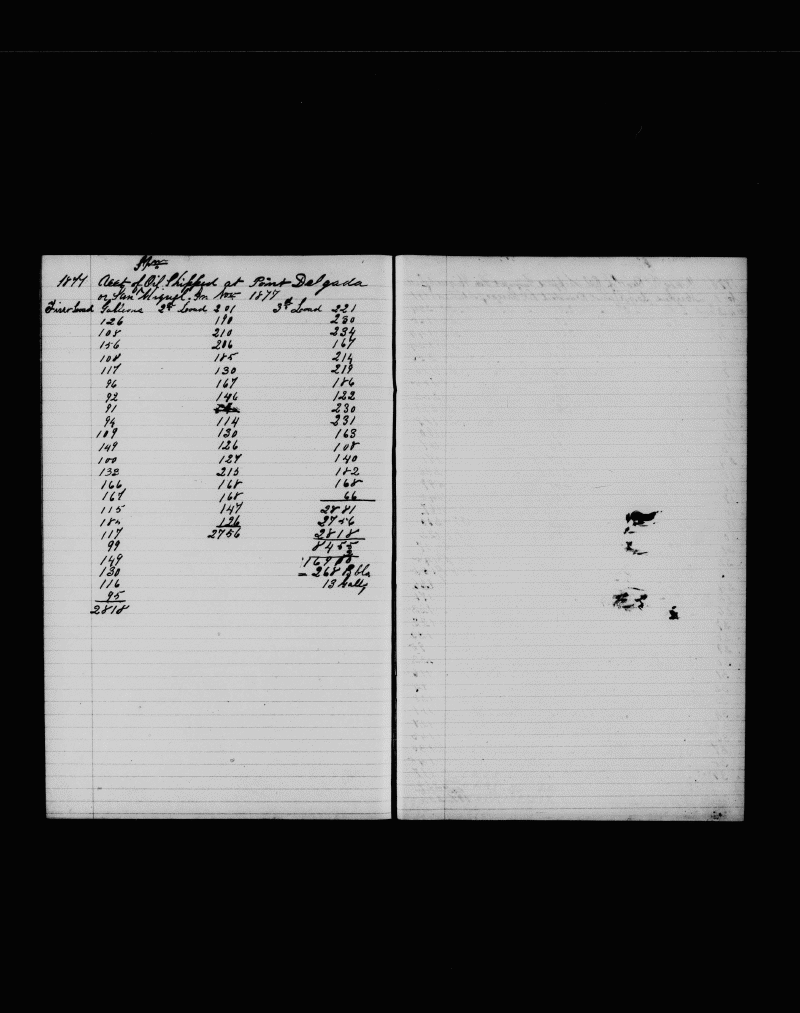 1877 Acct of Oil Shipped at Point Delgada
or San Miguel In Nov 1877
First Load Gallons 2d Load 201 3d Load 221
126 190 230
108 210 234
156 206 167
108 185 214
117 130 219
96 167 186
92 146 122
91 230
94 114 231
109 130 163
149 126 108
100 127 140
133 215 182
166 168 168
167 168 66
115 147 2881
184 126 2756
117 2756 2818
99 8455
149
130 = 268 Bbls
116 13 Galls
95
2818